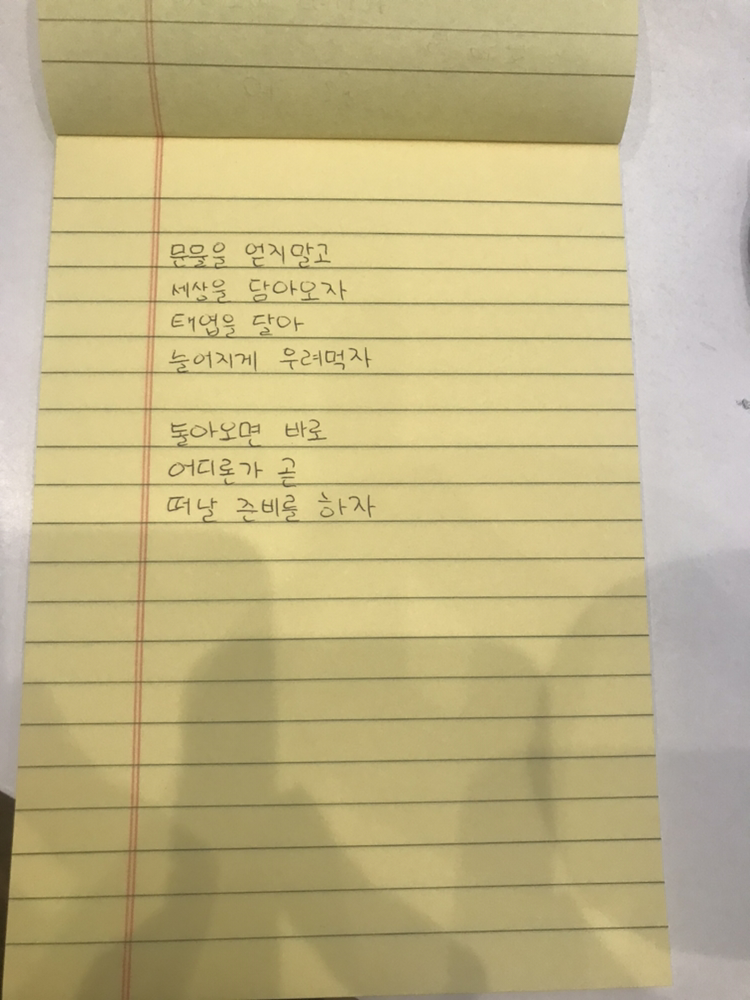 문물을 얻지말고
세상을 담아오자
태엽을 달아
늘어지게 우려먹자
돌아오면 바로
어디론가 곧
떠날 준비를 하자